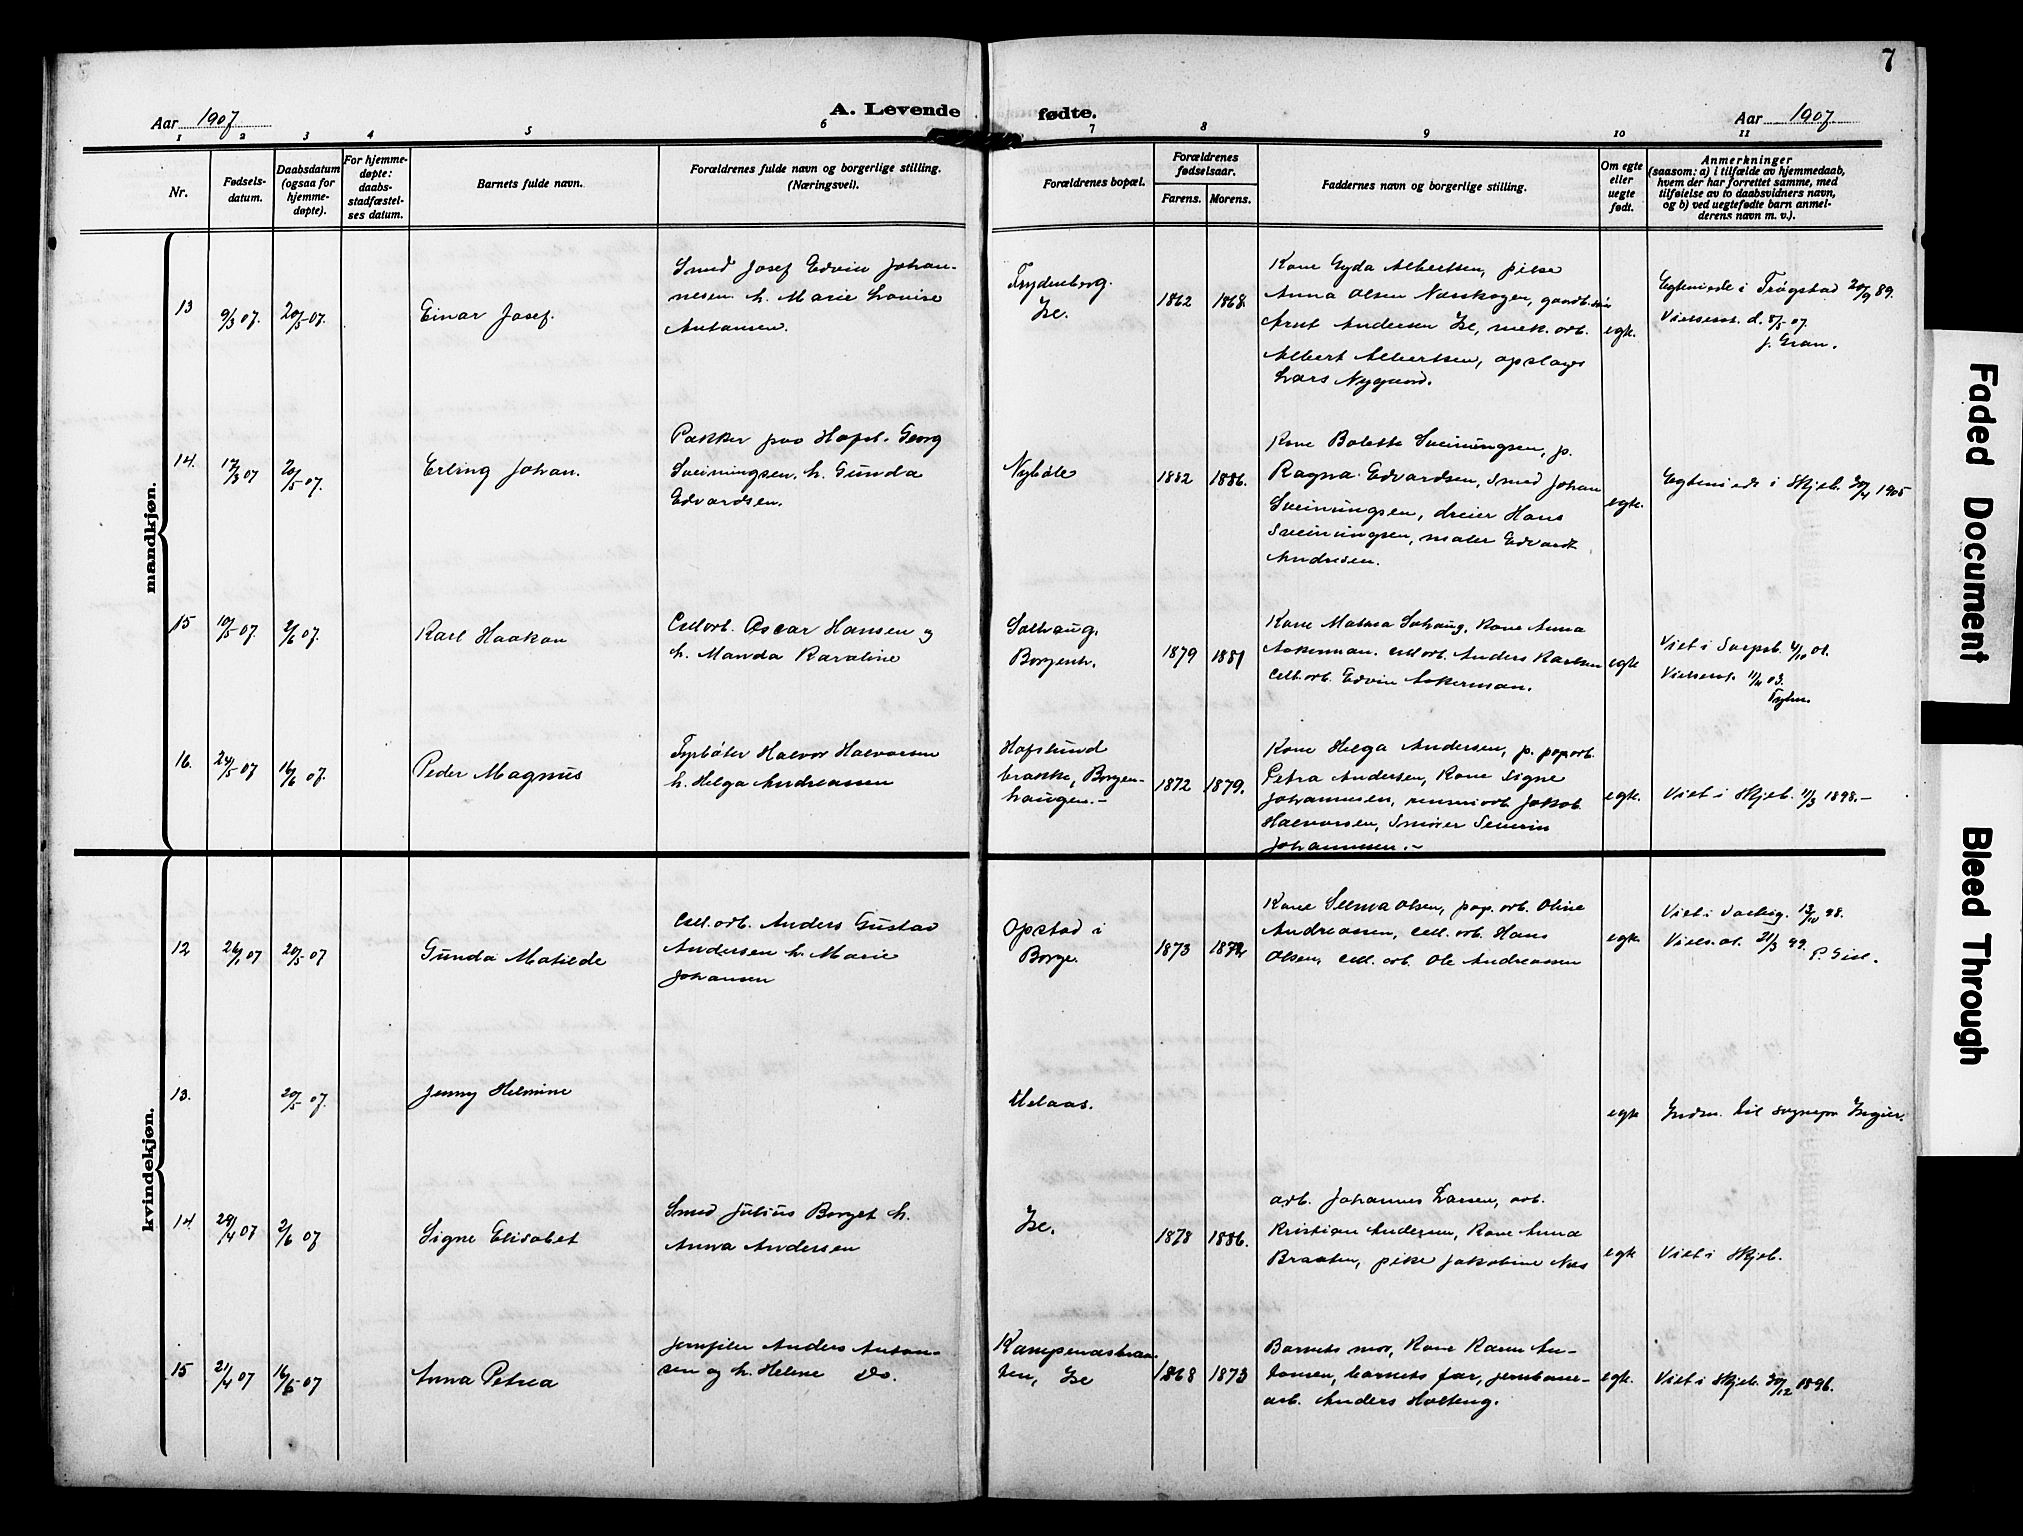 7
Aar 1907
A. Levende fødte.
Aar 1907
1 2 3 4 5 6 7 8 9 10 11
Nr.
Fødsels-
datum.
Daabsdatum
(ogsaa for
hjemme-
døpte).
For hjemme-
døpte:
daabs-
stadfæstel-
ses datum.
Barnets fulde navn.
Forældrenes fulde navn og borgerlige stilling.
(Næringsvei).
Forældrenes bopæl.
Forældrenes
fødselsaar.
Farens. Morens.
Faddernes navn og borgerlige stilling.
Om egte
eller
uegte
født.
Anmerkninger
(saasom: a) i tilfælde av hjemmedaab,
hvem der har forrettet samme, med
tilføielse av to daabsvidners navn,
og b) ved uegtefødte barn anmel-
derens navn m. v.).
mandkjøn.
13
9/3 07.
20/5 07.
Einar Josef.
Smed Josef Edvin Johan-
nesen h. Marie Lovise
Antonsen.
Frydenberg.
Ise.
1862
1868.
Kone Gyda Albertsen, pike
Anna Olsen Næsskogen, gaardb.
Arnt Andersen Ise, mek. arb.
Albert Albertsen, opslager
Lars Nygaard.
egte.
Egteviede i Trøgstad 20/9 89.
Vielsesat. d. 8/5 07.
J. Gran.
14.
17/3 07
20/5 07.
Erling Johan.
Pakker paa Hafsl. Georg
Sveinungsen. h. Gunda
Edvardsen.
Nybøle
1882
1886.
Kone Bolette Sveinungsen, p.
Ragna Edvardsen, Smed Johan
Sveinungsen, dreier Hans
Sveinungsen, maler Edvardt
Andresen.
egte.
Egteviede i Skjeb. 30/4 1905
15
10/5 07.
2/6 07.
Karl Haakon
Cell.arb. Oscar Hansen og
h. Manda Karoline
Solhaug.
Borgenh.
1879
1881
Kone Mathea Solhaug, Kone Anna
Askerman. cell.arb. Anders Karlsen
cell.arb. Edvin Askerman.
egte
Viet i Sarpsb. 4/10 01.
Vielsesat. 11/11 03.
16.
24/5 07
16/6 07.
Peder Magnus
Fyrbøter Halvor Halvorsen
h. Helga Andreassen
Hafslund
brakke, Borgen-
haugen.-
1872
1879.
Kone Helga Andersen, p. pap.arb.
Petra Andersen, Kone Signe
Johannesen, renseriarb. Jakob
Halvorsen, Smører Severin
Johannesen.-
egte.
Viet i Skjeb. 11/3 1898.-
kvindekjøn.
12
26/1 07
20/5 07
Gunda Matilde
Cell.arb. Anders Gustav
Andersen h. Marie
Johansen
Opstad i
Borge.
1873
1872
Kone Selma Olsen, pap. arb. Oline
Andreassen, cell. arb. Hans
Olsen, cell. arb. Ole Andreassen
egte.
Viet i Varteig. 13/10 98.
Viels.at. 21/3 99.
13.
20/5 07.
Jenny Helmine
Ulelaas.
egte
Indm. til sognepr
14.
28/4 07
2/6 07
Signe Elisabet
Smed Julius Borget h.
Anna Andersen
Ise.
1878
1886.
arb. Johannes Larsen, arb.
Kristian Andersen, Kone Anna
Braaten, pike Jakobine Næs
egte
Viet i Skjeb.
15
21/4 07
16/6 07
Anna Petrea
Jernfiler Anders Anton-
sen og h. Helene do.
Kampenesbraa-
ten, Ise
1868
1873
Barnets mor, Kone Karen An-
tonsen, barnets far, jernbane-
arb. Anders Holteng.
egte.
Viet i Skjeb. 30/12 1896.
Faded Document
Bleed Through